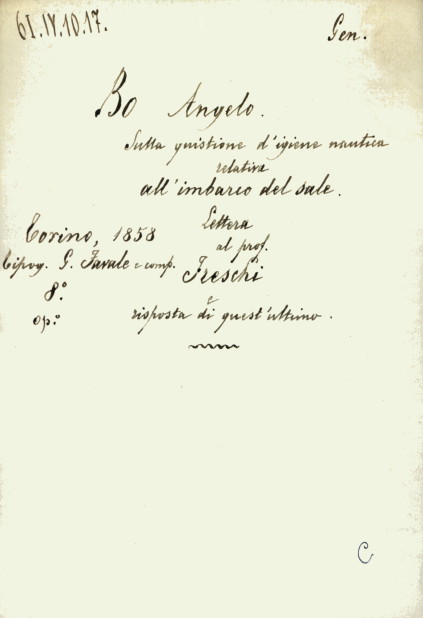 61.IV.10.17.
Gen.
Bo Angelo.
Sulla quistione d'igiene nautica
relativa
all'imbarco del sale.
Lettera
al prof.
Freschi
e
risposta di quest'ultimo.
Torino, 1858
Tipog. G. Favale e comp.
8.º
op.º
C